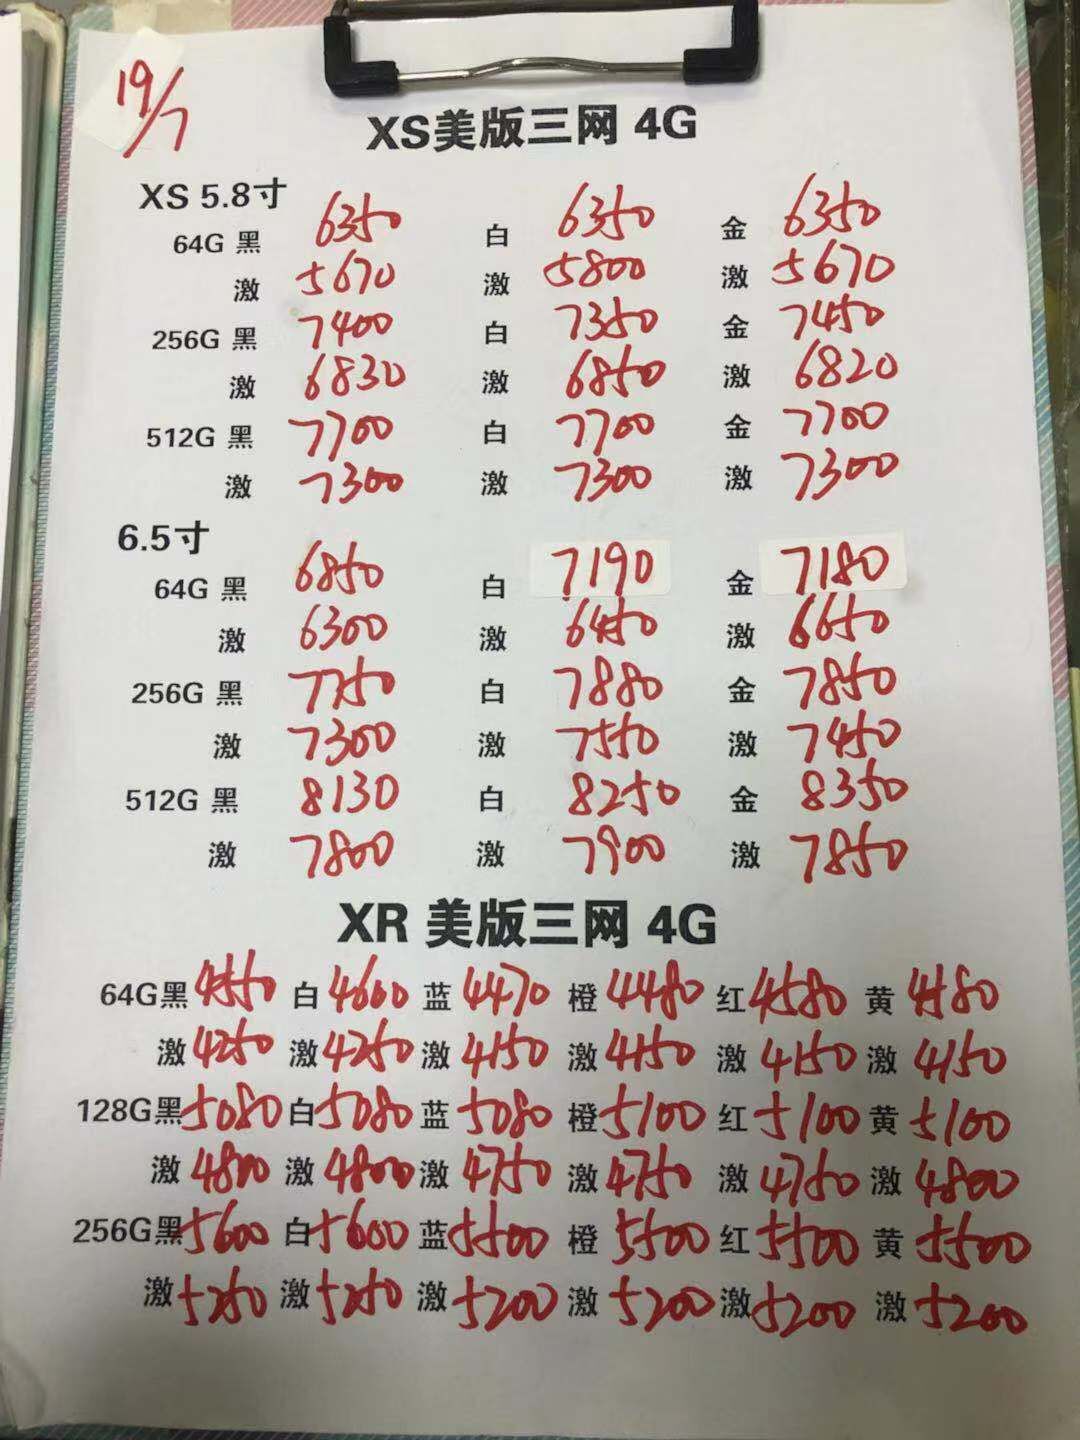 19/7
XS美版三网 4G
XS 5.8寸
64G 黑 6350 白 6350 金 6350
激 5670 激 5800 激 5670
256G 黑 7400 白 7350 金 7450
激 6830 激 6850 激 6820
512G 黑 7700 白 7700 金 7700
激 7300 激 7300 激 7300
6.5寸
64G 黑 6850 白 7190 金 7180
激 6300 激 6450 激 6650
256G 黑 7750 白 7880 金 7850
激 7300 激 7550 激 7450
512G 黑 8130 白 8250 金 8350
激 7800 激 7900 激 7850
XR 美版三网 4G
64G黑 4550 白 4600 蓝 4470 橙 4480 红 4580 黄 4580
激 4250 激 4250 激 4150 激 4150 激 4150 激 4150
128G黑 5080 白 5080 蓝 5080 橙 5100 红 5100 黄 5100
激 4800 激 4800 激 4750 激 4750 激 4750 激 4800
256G黑 5600 白 5600 蓝 5500 橙 5500 红 5500 黄 5500
激 5250 激 5250 激 5200 激 5200 激 5200 激 5200